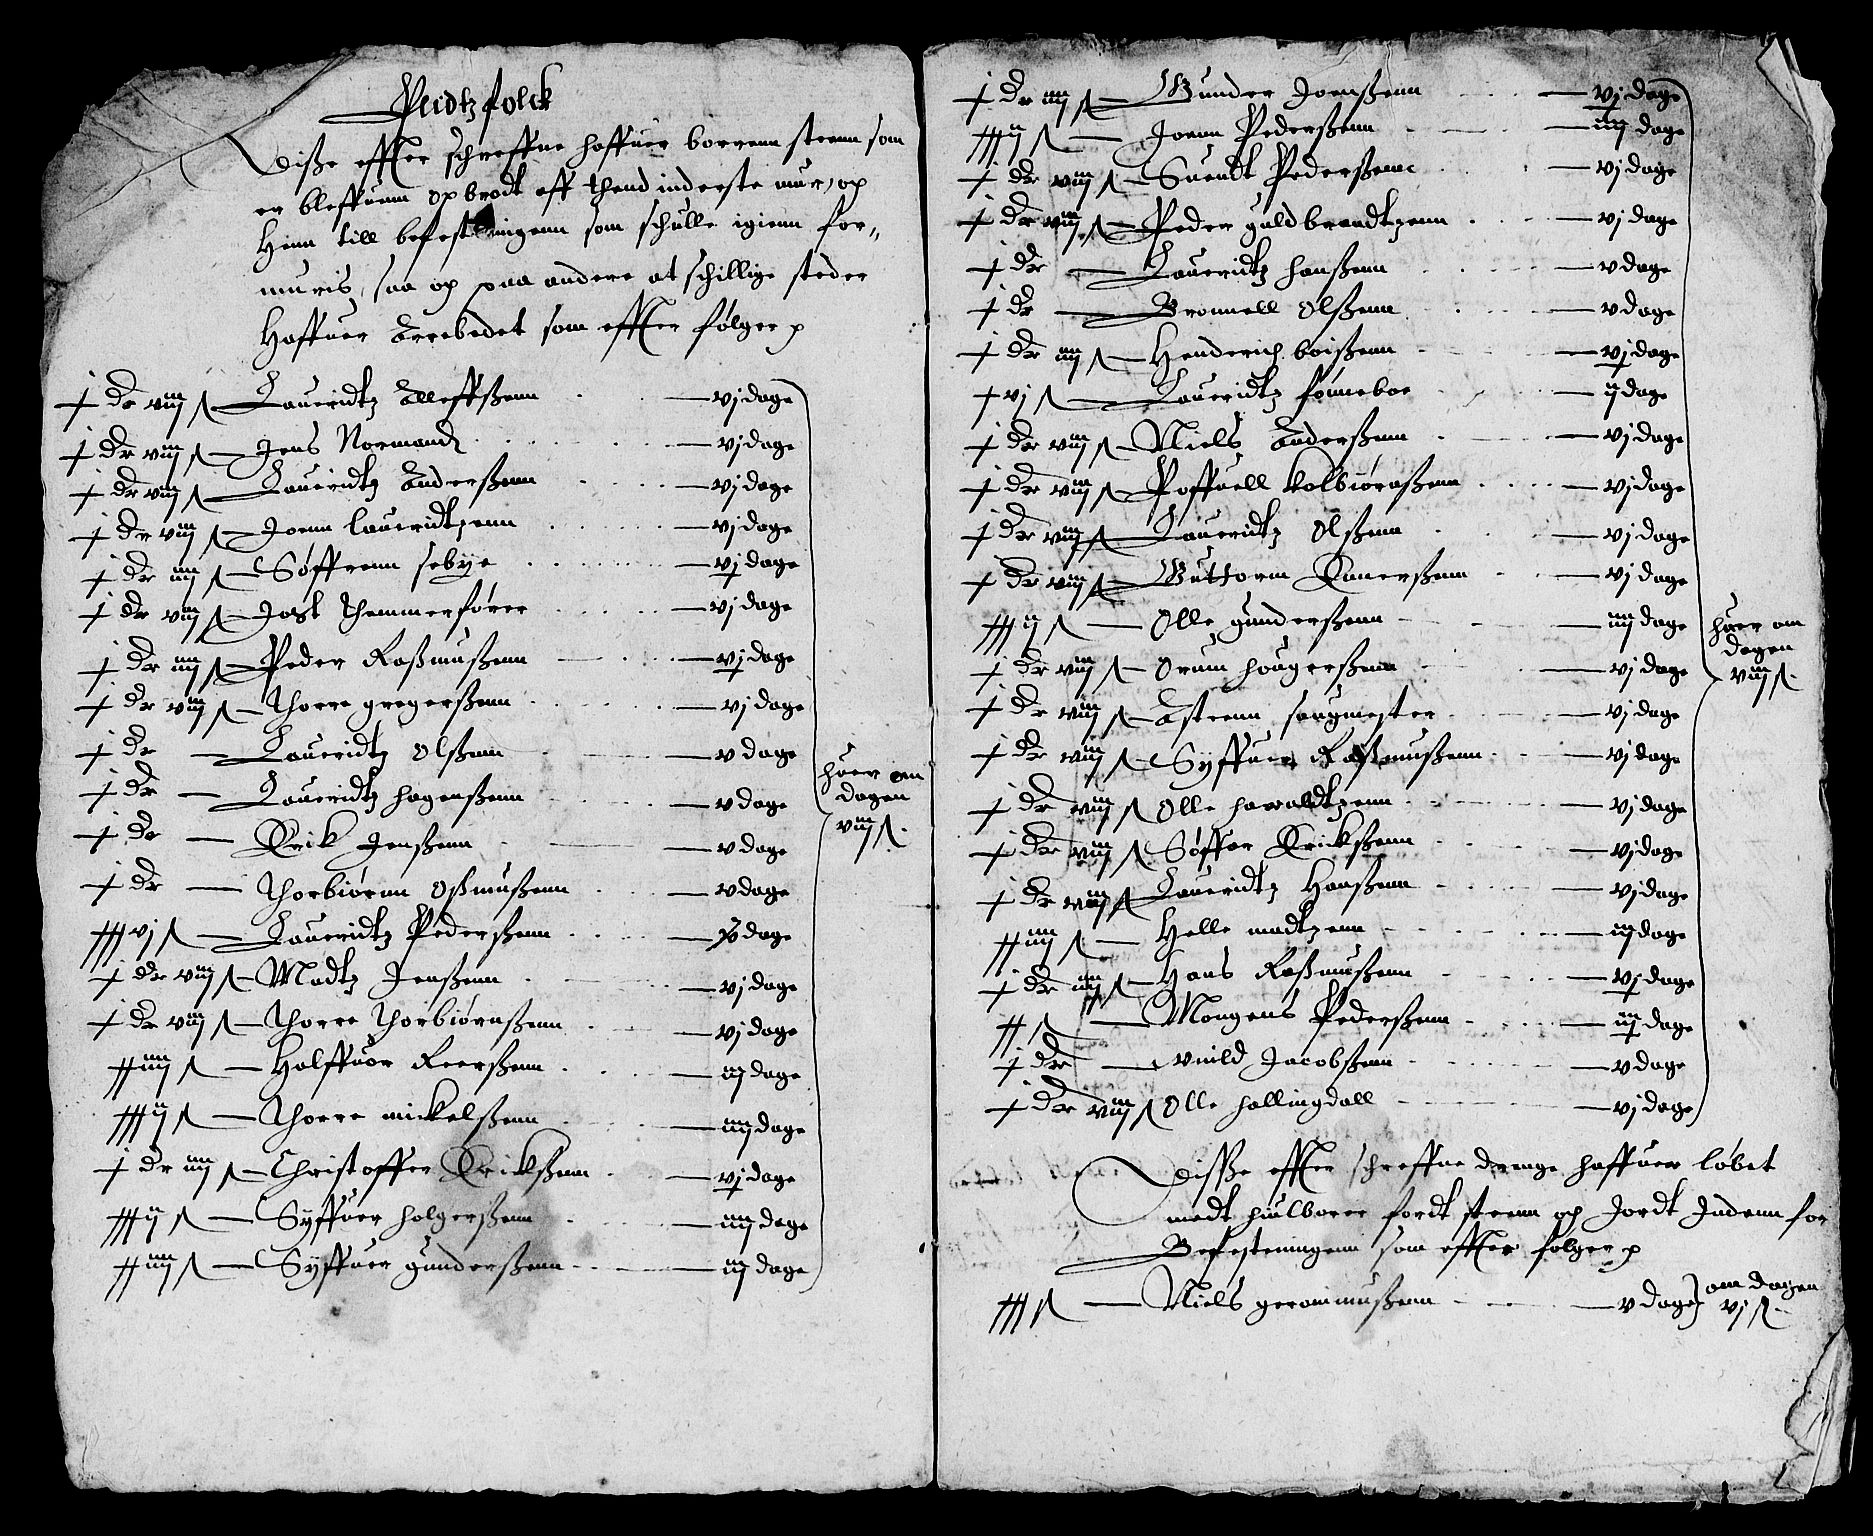 Pliidtzfolck
Disße effter schreffne haffuer borrenn steenn som
er bleffuenn opbrodt aff thend inderste mur, op
Henn till befestningenn som schulle igienn for„
muris, saa og paa andere atschillige steder
Haffuer Arrebedet som effter følger
j dr viij s Lauridtz Alleffßenn vj dage
j dr viij s Jens Normand vj dage
j dr viij s Lauridtz Anderßenn vj dage
j dr viij s Joenn lauridtzenn vj dage
j dr iiij s Søffrenn sebye vj dage
j dr viij s Jost Themmerfører vj dage
j dr iiij s Peder Raßmußenn vj dage
j dr viij s Thorre gregerßenn vj dage
j dr Lauridtz Olßenn v dage
j dr Lauridtz hagenßenn v dage
j dr Erik Jenßenn v dage
j dr Thorbiørnn Oßmußenn v dage
vj s Lauridtz Pederßenn dage
j dr viij s Madtz Jenßenn vj dage
j dr viij s Thorre Thorbiørnßenn vj dage
iiij s Halffuor Reerßenn iij dage
ij s Thorre mickelßenn iiij dage
j dr iiij s Christoffer Erickßenn vj dage
ij s Syffuer holgerßenn iiij dage
iiij s Syffuer gunderßenn iij dage
huer om
dagen
viij s.
j dr iiij s Gunder Joenßenn vj dage
ij s Joenn Pederßenn iiij dage
j dr viij s Suendt Pederßenn vj dage
j dr viij s Peder guldbrandtzenn vj dage
j dr Lauridtz hanßenn v dage
j dr Bronnell Olßenn v dage
j dr iiij s Henderich boißenn vj dage
j vj s Lauridtz sønneboe ij dage
j dr viij s Niels Anderßenn vj dage
j dr viij s Poffuell kolbiørnßenn vj dage
j dr viij s Lauridtz Olßenn vj dage
j dr viij s Guttorm Enerßenn vj dage
ij s Olle gunderßenn iiij dage
j dr viij s Orum hougerßenn vj dage
j dr viij s Asteenn saugmester vj dage
j dr viij s Syffuer Raßmußenn vj dage
j dr viij s Olle hawoldtzenn vj dage
j dr viij s Søffer Erickßenn vj dage
j dr viij s Lauridtz Hanßenn vj dage
iiij s Helle madtzenn iij dage
j dr iiij s Hans Raßmußenn vj dage
s Mongens Pederßenn iij dage
j dr vuild Jacobßenn v dage
j dr viij s Olle hallingdall vj dage
huer om
dagen
viij s.
Disße effter schreffne drenge haffuer løbet
medt hiulborer fordt steenn og Jordt Indenn for
Befesteningenn som effter følger
s Niels gerommußenn v dage
om dagen
vj s.